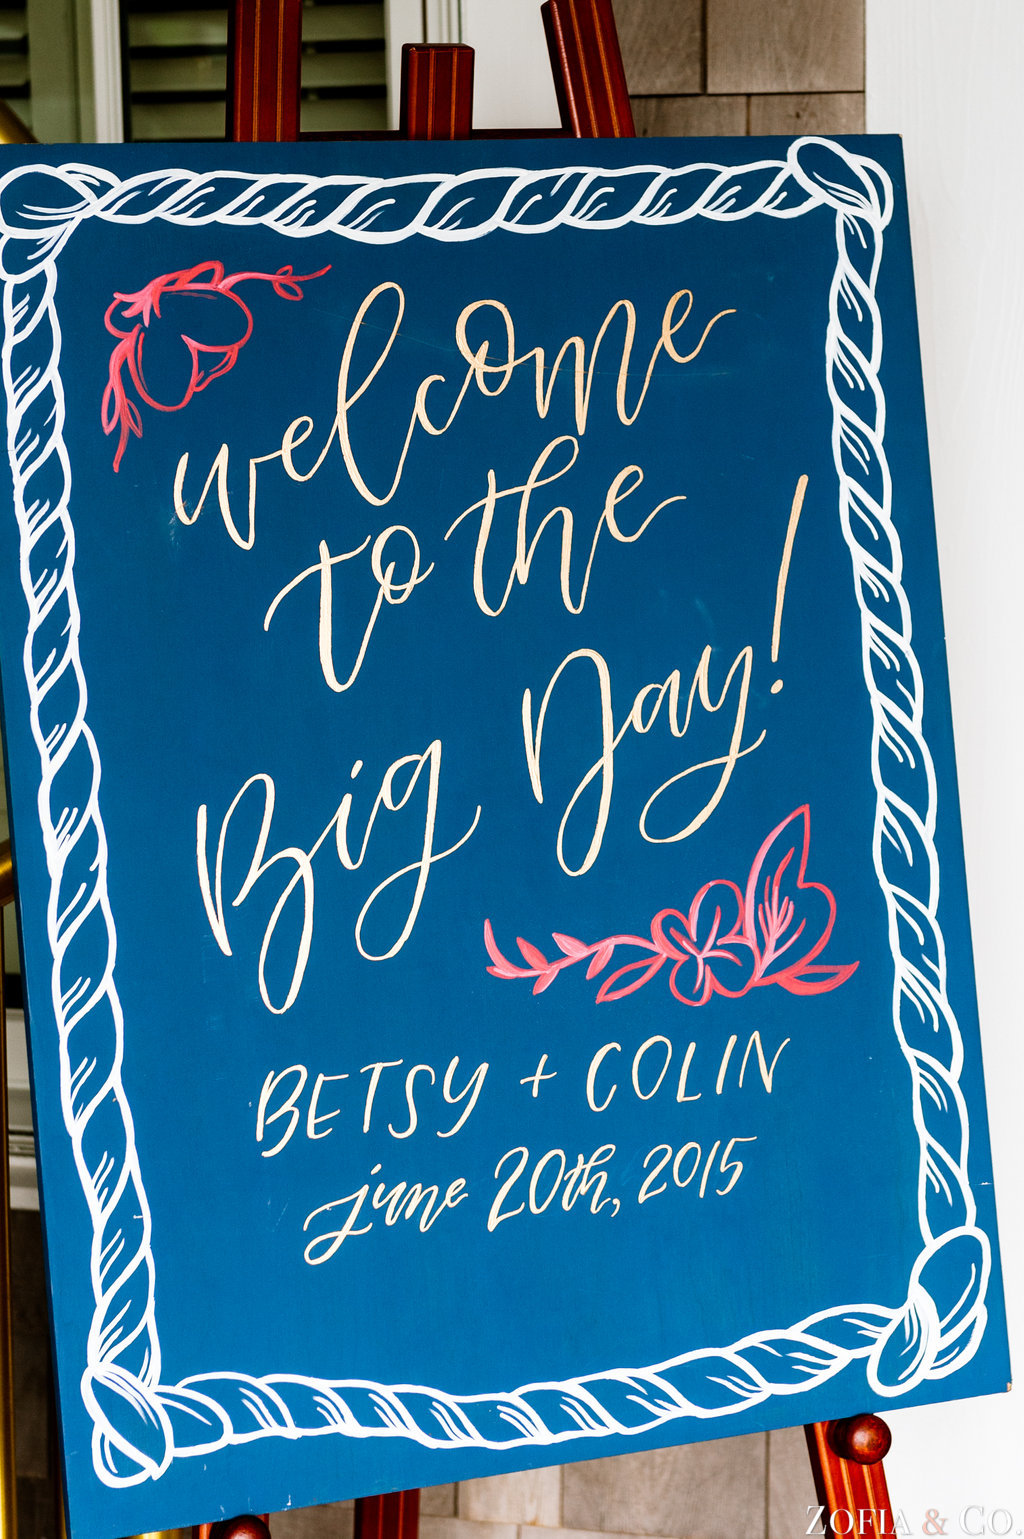 welcome
to the
Big Day!
BETSY + COLIN
june 20th, 2015
ZOFIA & CO.